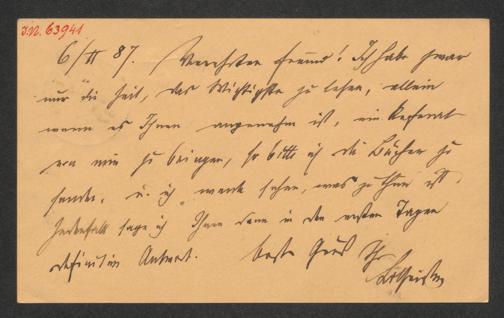 I.N. 63941
6/II 87. Verehrter Freund! Ich habe zwar
nur die Zeit, das Wichtigste zu lesen, allein
wenn es Ihnen angenehm ist, ein Referat
von mir zu bringen, so bitte ich die Bücher zu
senden, u. ich werde sehen, was zu thun ist.
Jedenfalls sage ich Ihnen dann in den ersten Tagen
definitiv Antwort. Beste Grüße Ihr